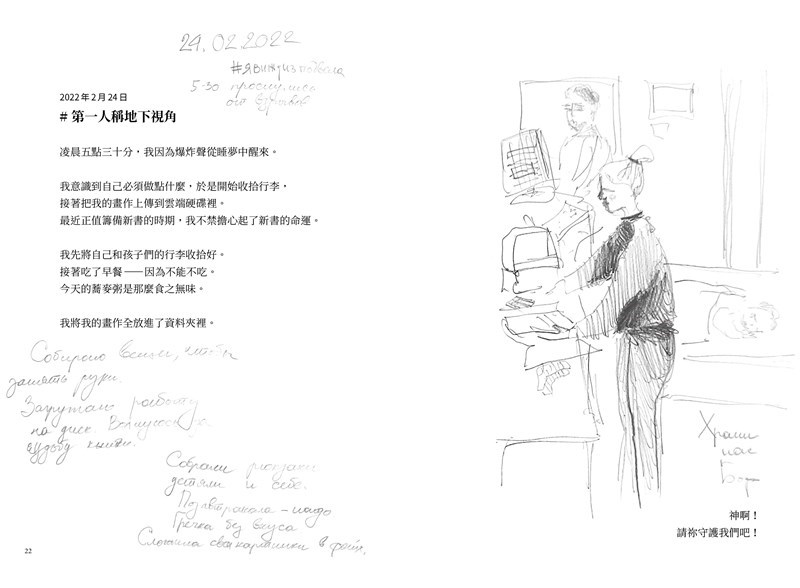 24.02.2022
#явижуизподвала
5-30 проснулись
от взрывов
2022 年 2 月 24 日
# 第一人稱地下視角
凌晨五點三十分，我因為爆炸聲從睡夢中醒來。
我意識到自己必須做點什麼，於是開始收拾行李，
接著把我的畫作上傳到雲端硬碟裡。
最近正值籌備新書的時期，我不禁擔心起了新書的命運。
我先將自己和孩子們的行李收拾好。
接著吃了早餐——因為不能不吃。
今天的蕎麥粥是那麼食之無味。
我將我的畫作全放進了資料夾裡。
Собираю вещи, чтобы
занять руки.
Загружаю работу
на диск. Волнуюсь за
судьбу книги.
Собрали рюкзаки
детям и себе.
Позавтракала - надо
Гречка без вкуса
Сложила свои картинки в файл.
Храни
нас
Бог
神啊！
請祢守護我們吧！
22